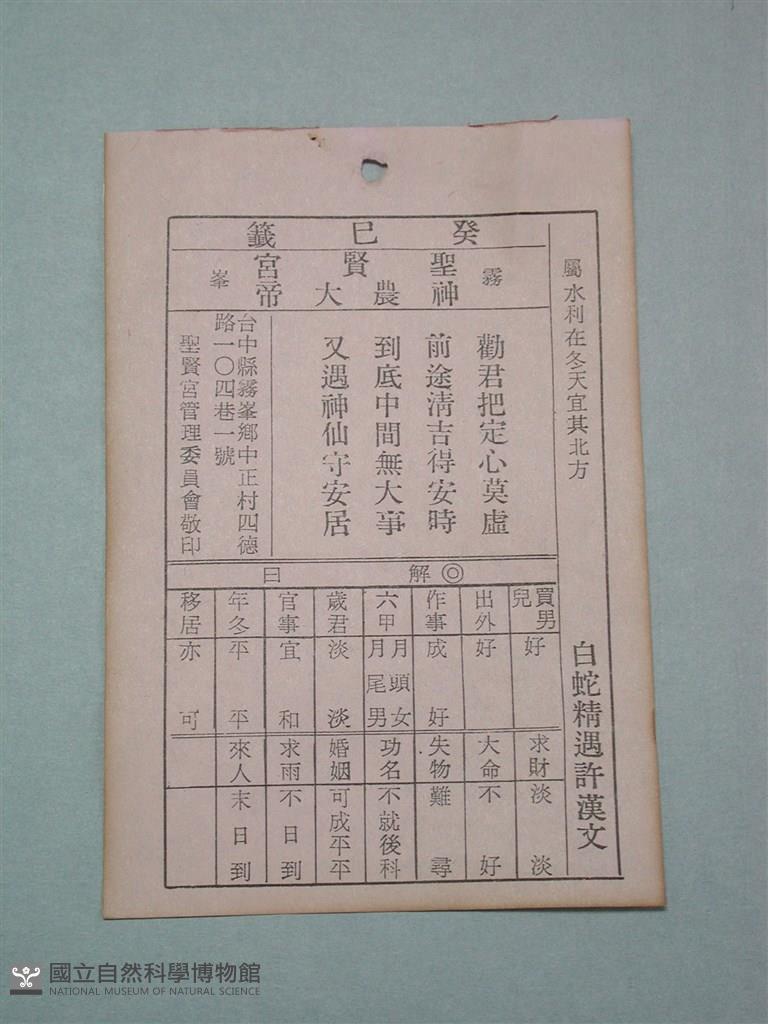 屬水利在冬天宜其北方
白蛇精遇許漢文
癸巳籤
霧峯
聖賢宮
神農大帝
勸君把定心莫虛
前途清吉得安時
到底中間無大事
又遇神仙守安居
台中縣霧峯鄉中正村四德
路一〇四巷一號
聖賢宮管理委員會敬印
◎解曰
買男兒 好
出外 好
作事 成好
六甲 月頭女 月尾男
歲君 淡淡
官事 宜和
年冬 平平
移居 亦可
求財 淡淡
大命 不好
失物 難尋
功名 不就後科
婚姻 可成平平
求雨 不日到
來人 末日到
國立自然科學博物館
NATIONAL MUSEUM OF NATURAL SCIENCE